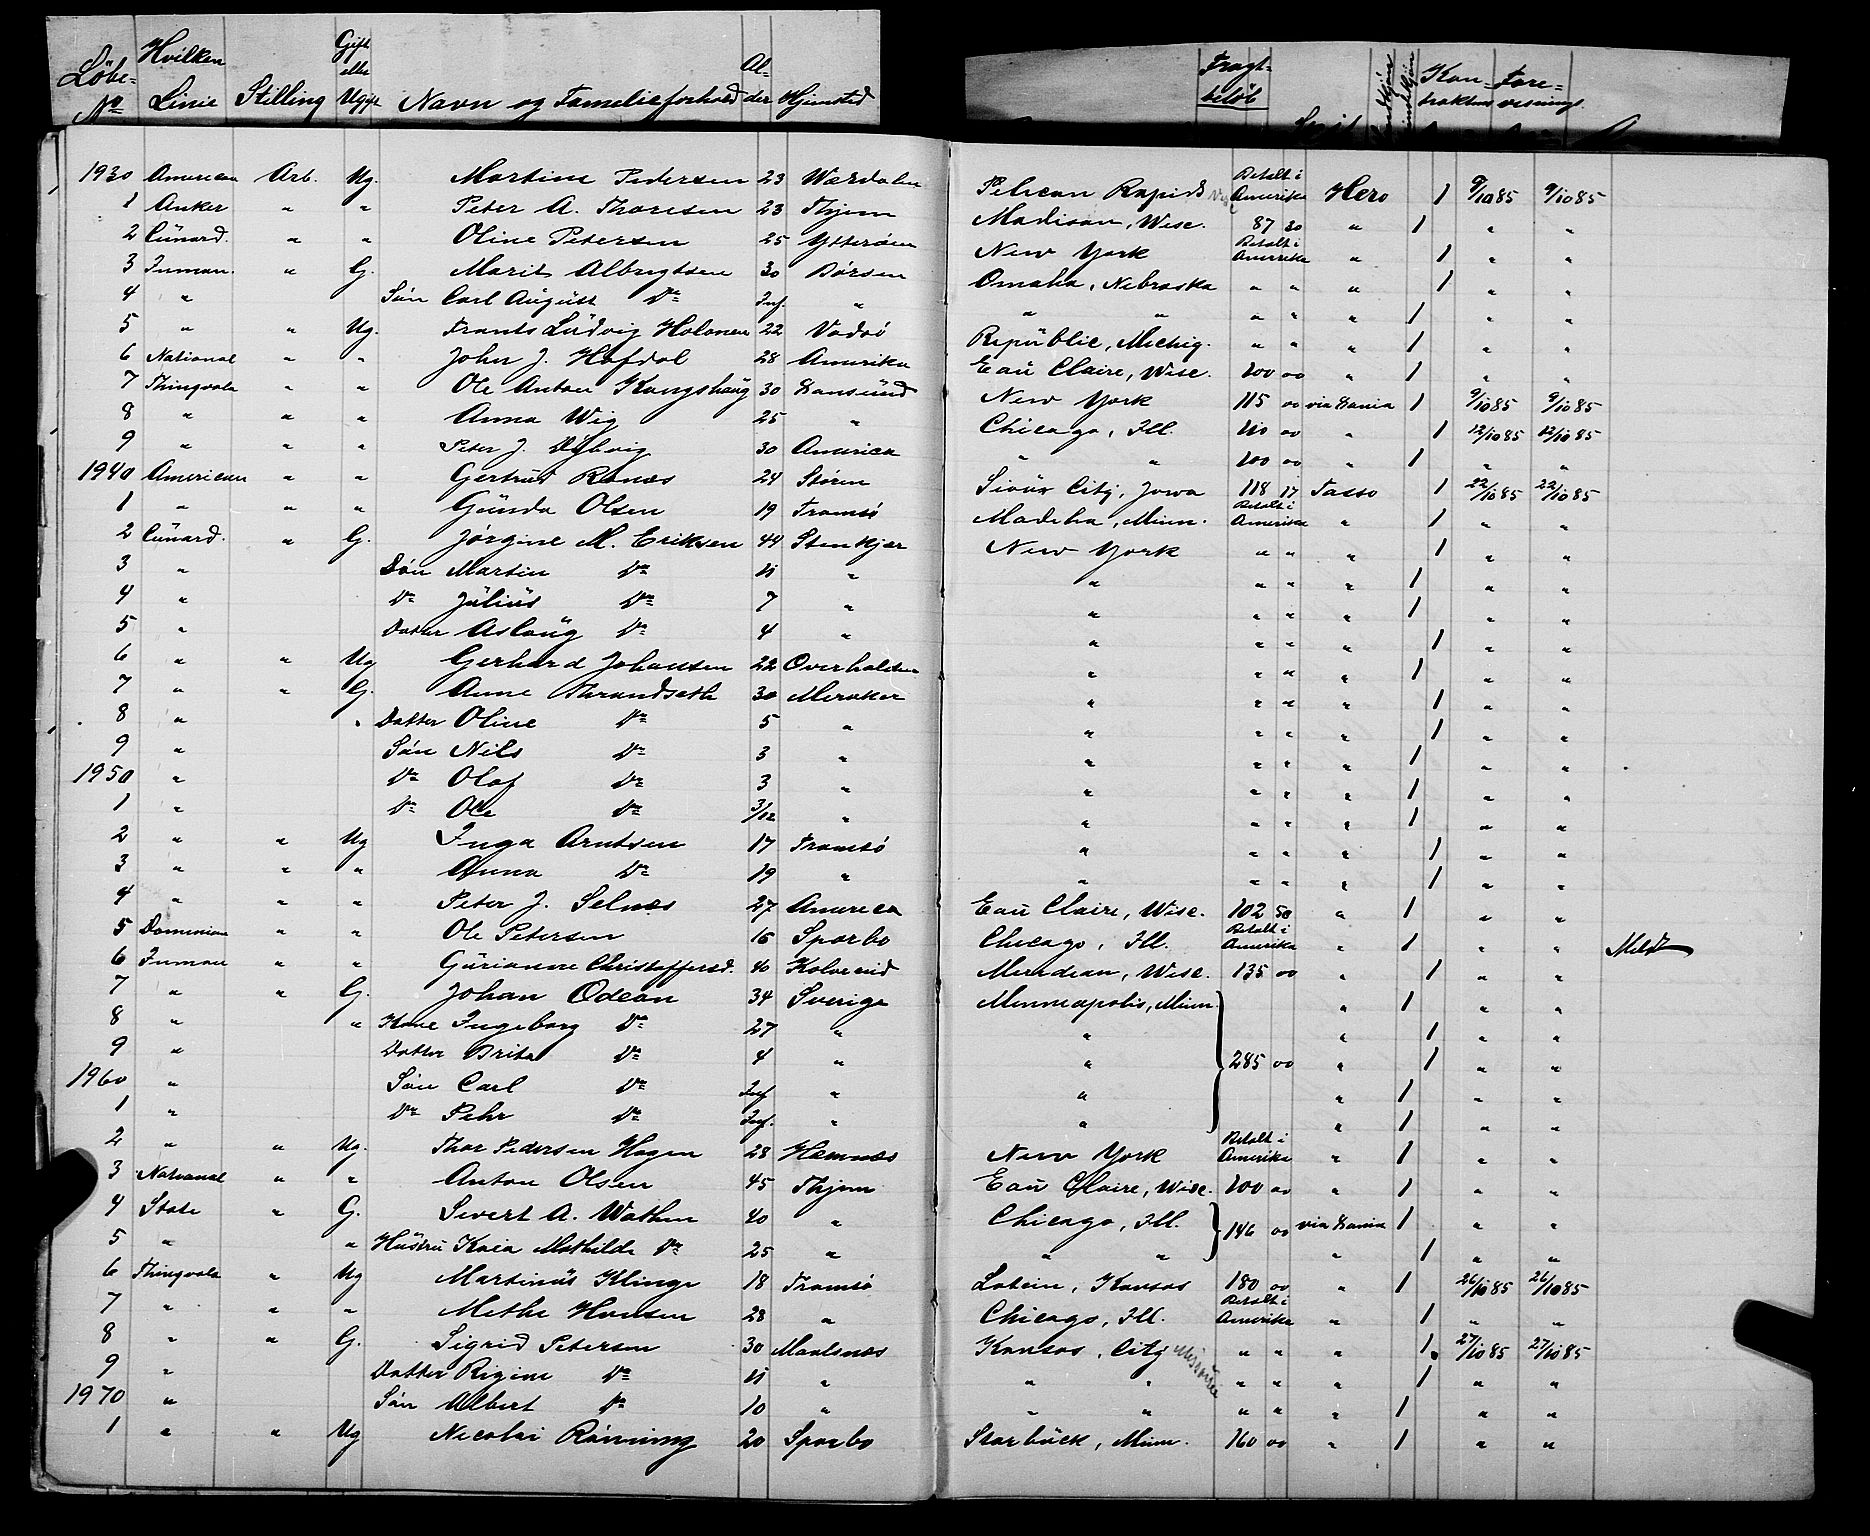 Löbe- No Hvilken Linie Stilling Gift eller Ugift Navn og Familieforhold Alder Hjemsted Fragtbeløb Kontraktens Forevisnings
1930 American Arb. Ug. Martine Pedersen 23 Værdalen Pelican Rapids Betalt i Amerika Hero 1 9/10 85 9/10 85
1 Anker " " Peter A. Thoresen 23 Thjem Madison, Wisc. 87 20 " 1 " "
2 Cunard. " " Oline Petersen 25 Ytterøen New York Betalt i Amerika " 1 " "
3 Inman. " G. Marit Albrigtsen 30 Børsen Omaha, Nebraska " " " 1 " "
4 " Søn Carl August Do Inf. " " " " " " 1 " "
5 " " Ug. Frants Ludvig Holonen 22 Vadsö Republic, Michig. " " " 1 " "
6 National " " John J. Hofdal 28 Amerika Eau Claire, Wisc. 100 00 " 1 " "
7 Thingvala " " Ole Anton Kongshaug 30 Xansund New York 115 00 via Xania 1 9/10 85 9/10 85
8 " " " Anna Wig 25 " Chicago, Ill. 110 00 " 1 12/10 85 12/10 85
9 " " " Peter J. Dybvig 30 America " " 100 00 " 1 " "
1940 American " " Gertrud Renæs 24 Støren Sioux City, Jowa 118 17 Tasso 1 22/10 85 22/10 85
1 " " " Gunda Olsen 19 Tromsö Madelia, Minn. Betalt i Amerika " 1 " "
2 Cunard. " G. Jørgine M. Eriksen 44 Stenkjær New York " " " 1 " "
3 " Søn Martin Do 11 " " " " " 1 " "
4 " Do Julius Do 7 " " " " " 1 " "
5 " Datter Aslaug Do 4 " " " " " 1 " "
6 " " Ug Gerhard Johansen 22 Overhalden " " " " 1 " "
7 " " G. Anne Thrandseth 30 Meraker " " " " 1 " "
8 " " Datter Oline Do 5 " " " " " 1 " "
9 " Søn Nils Do 3 " " " " " 1 " "
1950 " Do Olaf Do 3 " " " " " 1 " "
1 " Do Ole Do 3/12 " " " " " 1 " "
2 " " Ug Inga Arntsen 17 Tromsö " " " " 1 " "
3 " " " Anna Do 19 " " " " " 1 " "
4 " " " Peter J. Selnæs 27 America Eau Claire, Wisc. 102 50 " 1 " "
5 Dominion " " Ole Petersen 16 Sparbo Chicago, Ill. Betalt i Amerika " 1 " " Meldt
6 Inman " " Gurianne Christoffersd. 40 Kolvereid Meridean, Wisc. 135 00 " 1 " "
7 " " G. Johan Odean 34 Sverige Minneapolis, Minn. " 1 " "
8 " " Kone Ingeborg Do 27 " " " 1 " "
9 " Datter Brita Do 4 " " 285 00 " 1 " "
1960 " Søn Carl Do Inf " " " 1 " "
1 " Do Pehr Do Inf. " " " 1 " "
2 " " Ug. Thor Pedersen Hagen 28 Hemnæs New York Betalt i Amerika " 1 " "
3 National " " Anton Olsen 45 Thjem Eau Claire, Wisc. 100 00 " 1 " "
4 State " G. Sivert A. Wathen 40 " Chicago, Ill. 146 00 via Xania 1 " "
5 " " Hustru Kaia Mathilde Do 25 " " " " 1 " "
6 Thingvala " Ug Martinus Klinge 18 Tromsö Kansas 180 00 " 1 26/10 85 26/10 85
7 " " " Methe Hansen 28 " Chicago, Ill. Betalt i Amerika " 1 " "
8 " " G. Sigrid Petersen 30 Maalsnæs Kansas, City Missouri " " " 1 27/10 85 27/10 85
9 " Datter Rigine Do 11 " " " " " " 1 " "
1970 " Søn Albert Do 10 " " " " " " 1 " "
1 " " Ug Nicolai Rönning 20 Sparbo Starbuck, Minn. 160 00 " 1 " "